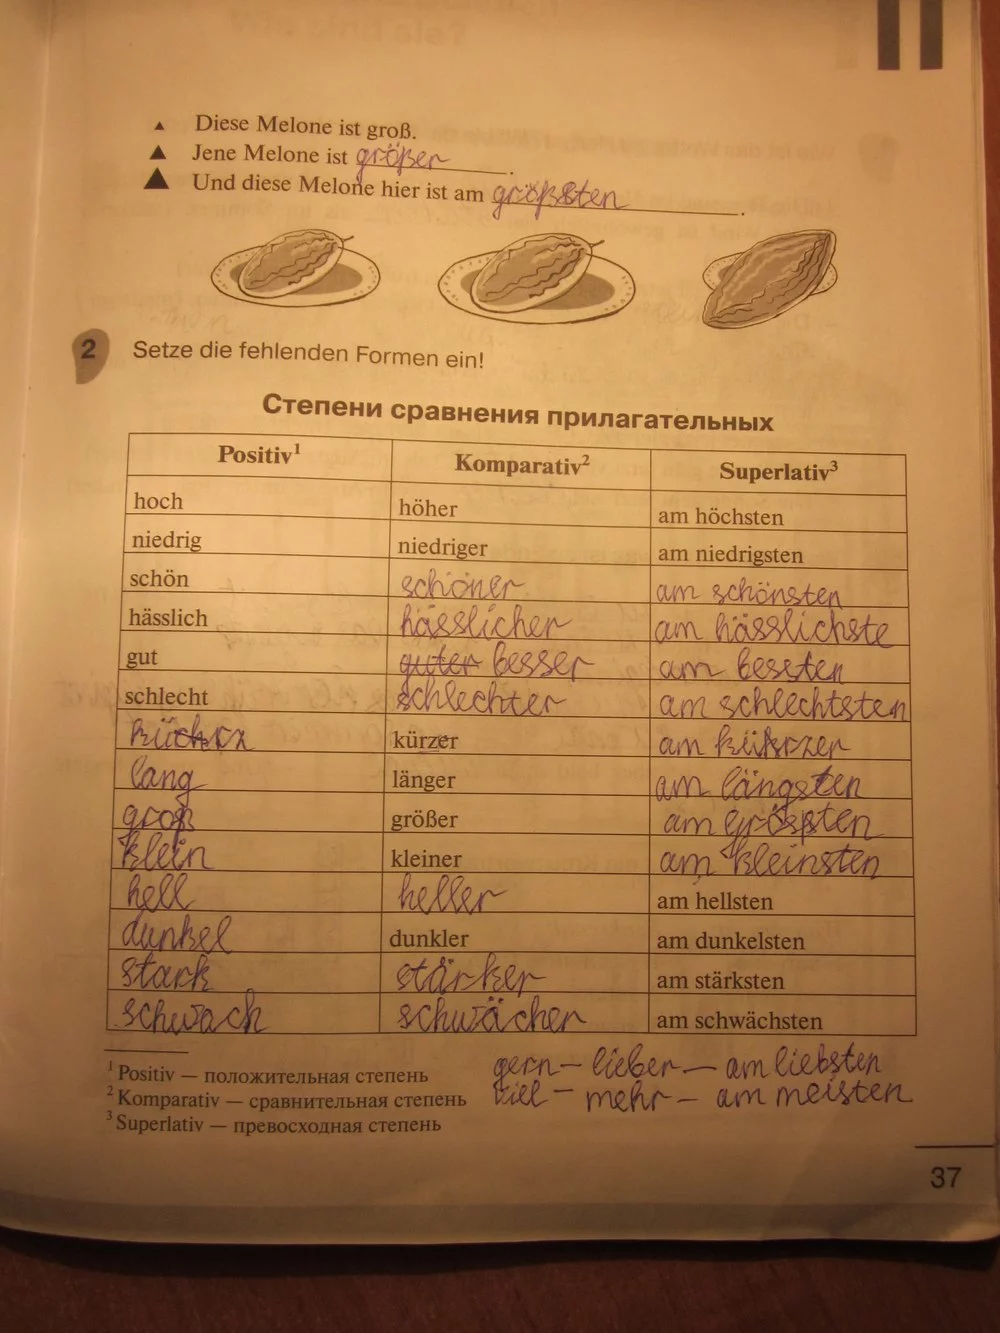 Diese Melone ist groß.
Jene Melone ist größer.
Und diese Melone hier ist am größten.
2 Setze die fehlenden Formen ein!
Степени сравнения прилагательных
Positiv¹ Komparativ² Superlativ³
hoch höher am höchsten
niedrig niedriger am niedrigsten
schön schöner am schönsten
hässlich hässlicher am hässlichste
gut guter besser am bessten
schlecht schlechter am schlechtsten
kürzer am kürzer
lang länger am längsten
groß größer am größten
klein kleiner am kleinsten
hell heller am hellsten
dunkel dunkler am dunkelsten
stark stärker am stärksten
schwach schwächer am schwächsten
¹ Positiv — положительная степень
² Komparativ — сравнительная степень
³ Superlativ — превосходная степень
gern — lieber — am liebsten
viel — mehr — am meisten
37